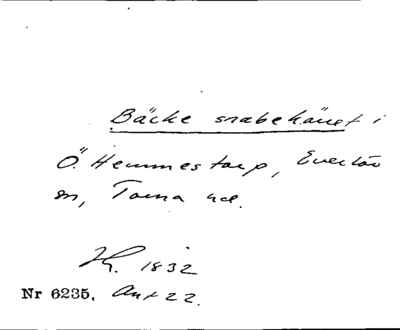 Bäcke snabekänet i
Ö. Hemmestorp, Everlöv
sn, Torna hd.
H. 1832
Nr 6235. Ant 22.